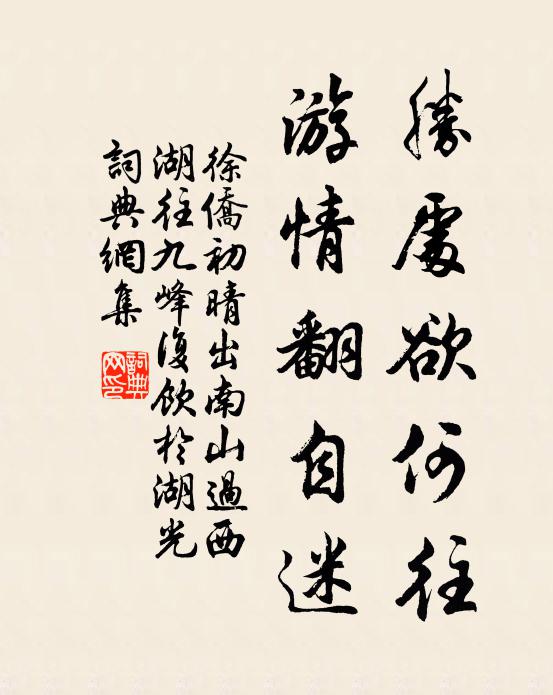 勝處欲何往
游情翻自迷
徐僑初晴出南山過西
湖往九峰復飲於湖光
詞典網集
詞典
网印